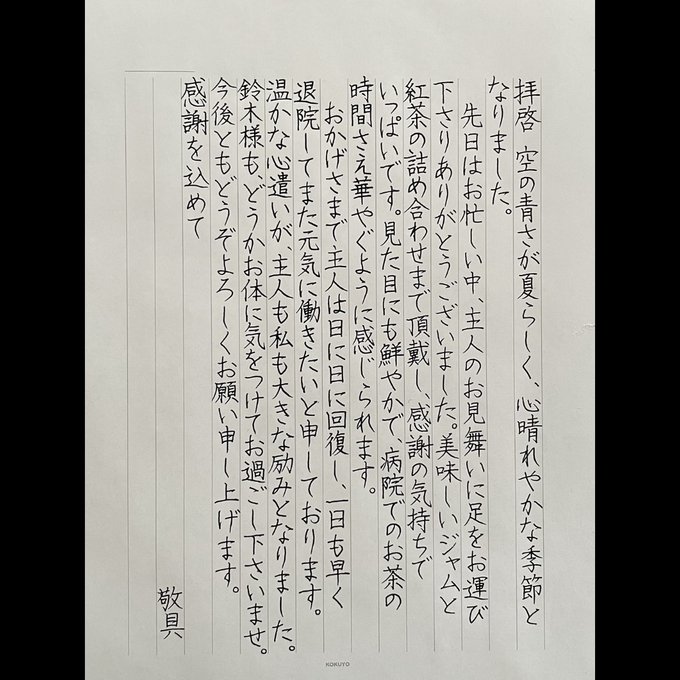 拝啓 空の青さが夏らしく、心晴れやかな季節と
なりました。
先日はお忙しい中、主人のお見舞いに足をお運び
下さりありがとうございました。美味しいジャムと
紅茶の詰め合わせまで頂戴し、感謝の気持ちで
いっぱいです。見た目にも鮮やかで、病院でのお茶の
時間さえ華やぐように感じられます。
おかげさまで主人は日に日に回復し、一日も早く
退院してまた元気に働きたいと申しております。
温かな心遣いが、主人も私も大きな励みとなりました。
鈴木様も、どうかお体に気をつけてお過ごし下さいませ。
今後ともどうぞよろしくお願い申し上げます。
感謝を込めて
敬具
KOKUYO